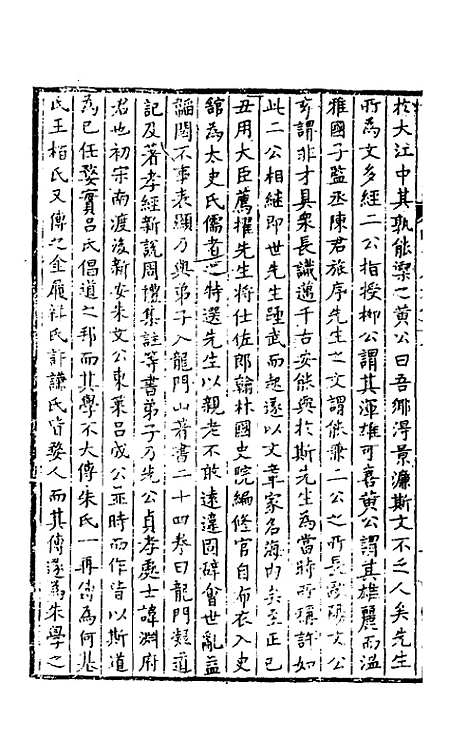 於大江中其孰能禦之黄公曰吾鄉得景濂斯文不乏人矣先生
所為文多經二公指授柳公謂其渾雄可喜黄公謂其雄麗而温
雅國子監丞陳君旅序先生之文謂能兼二公之所長歐陽文公
亦謂非才具衆長識邁千古安能與於斯先生為當時所稱許如
此二公相繼即世先生踵武而起遂以文章家名海内矣至正己
丑用大臣薦擢先生將仕佐郎翰林國史院編修官自布衣入史
舘為太史氏儒者之特選先生以親老不敢遠違固辭會世亂益
韜閟不事表顯乃與弟子入龍門山著書二十四卷曰龍門凝道
記及著孝經新說周禮集註等書弟子乃先公貞孝處士諱淵府
君也初宋南渡後新安朱文公東莱吕成公並時而作皆以斯道
為已任婺實吕氏倡道之邦而其學不大傳朱氏一再傳為何基
氏王柏氏又傳之金履祥氏許謙氏皆婺人而其傳遂為朱學之